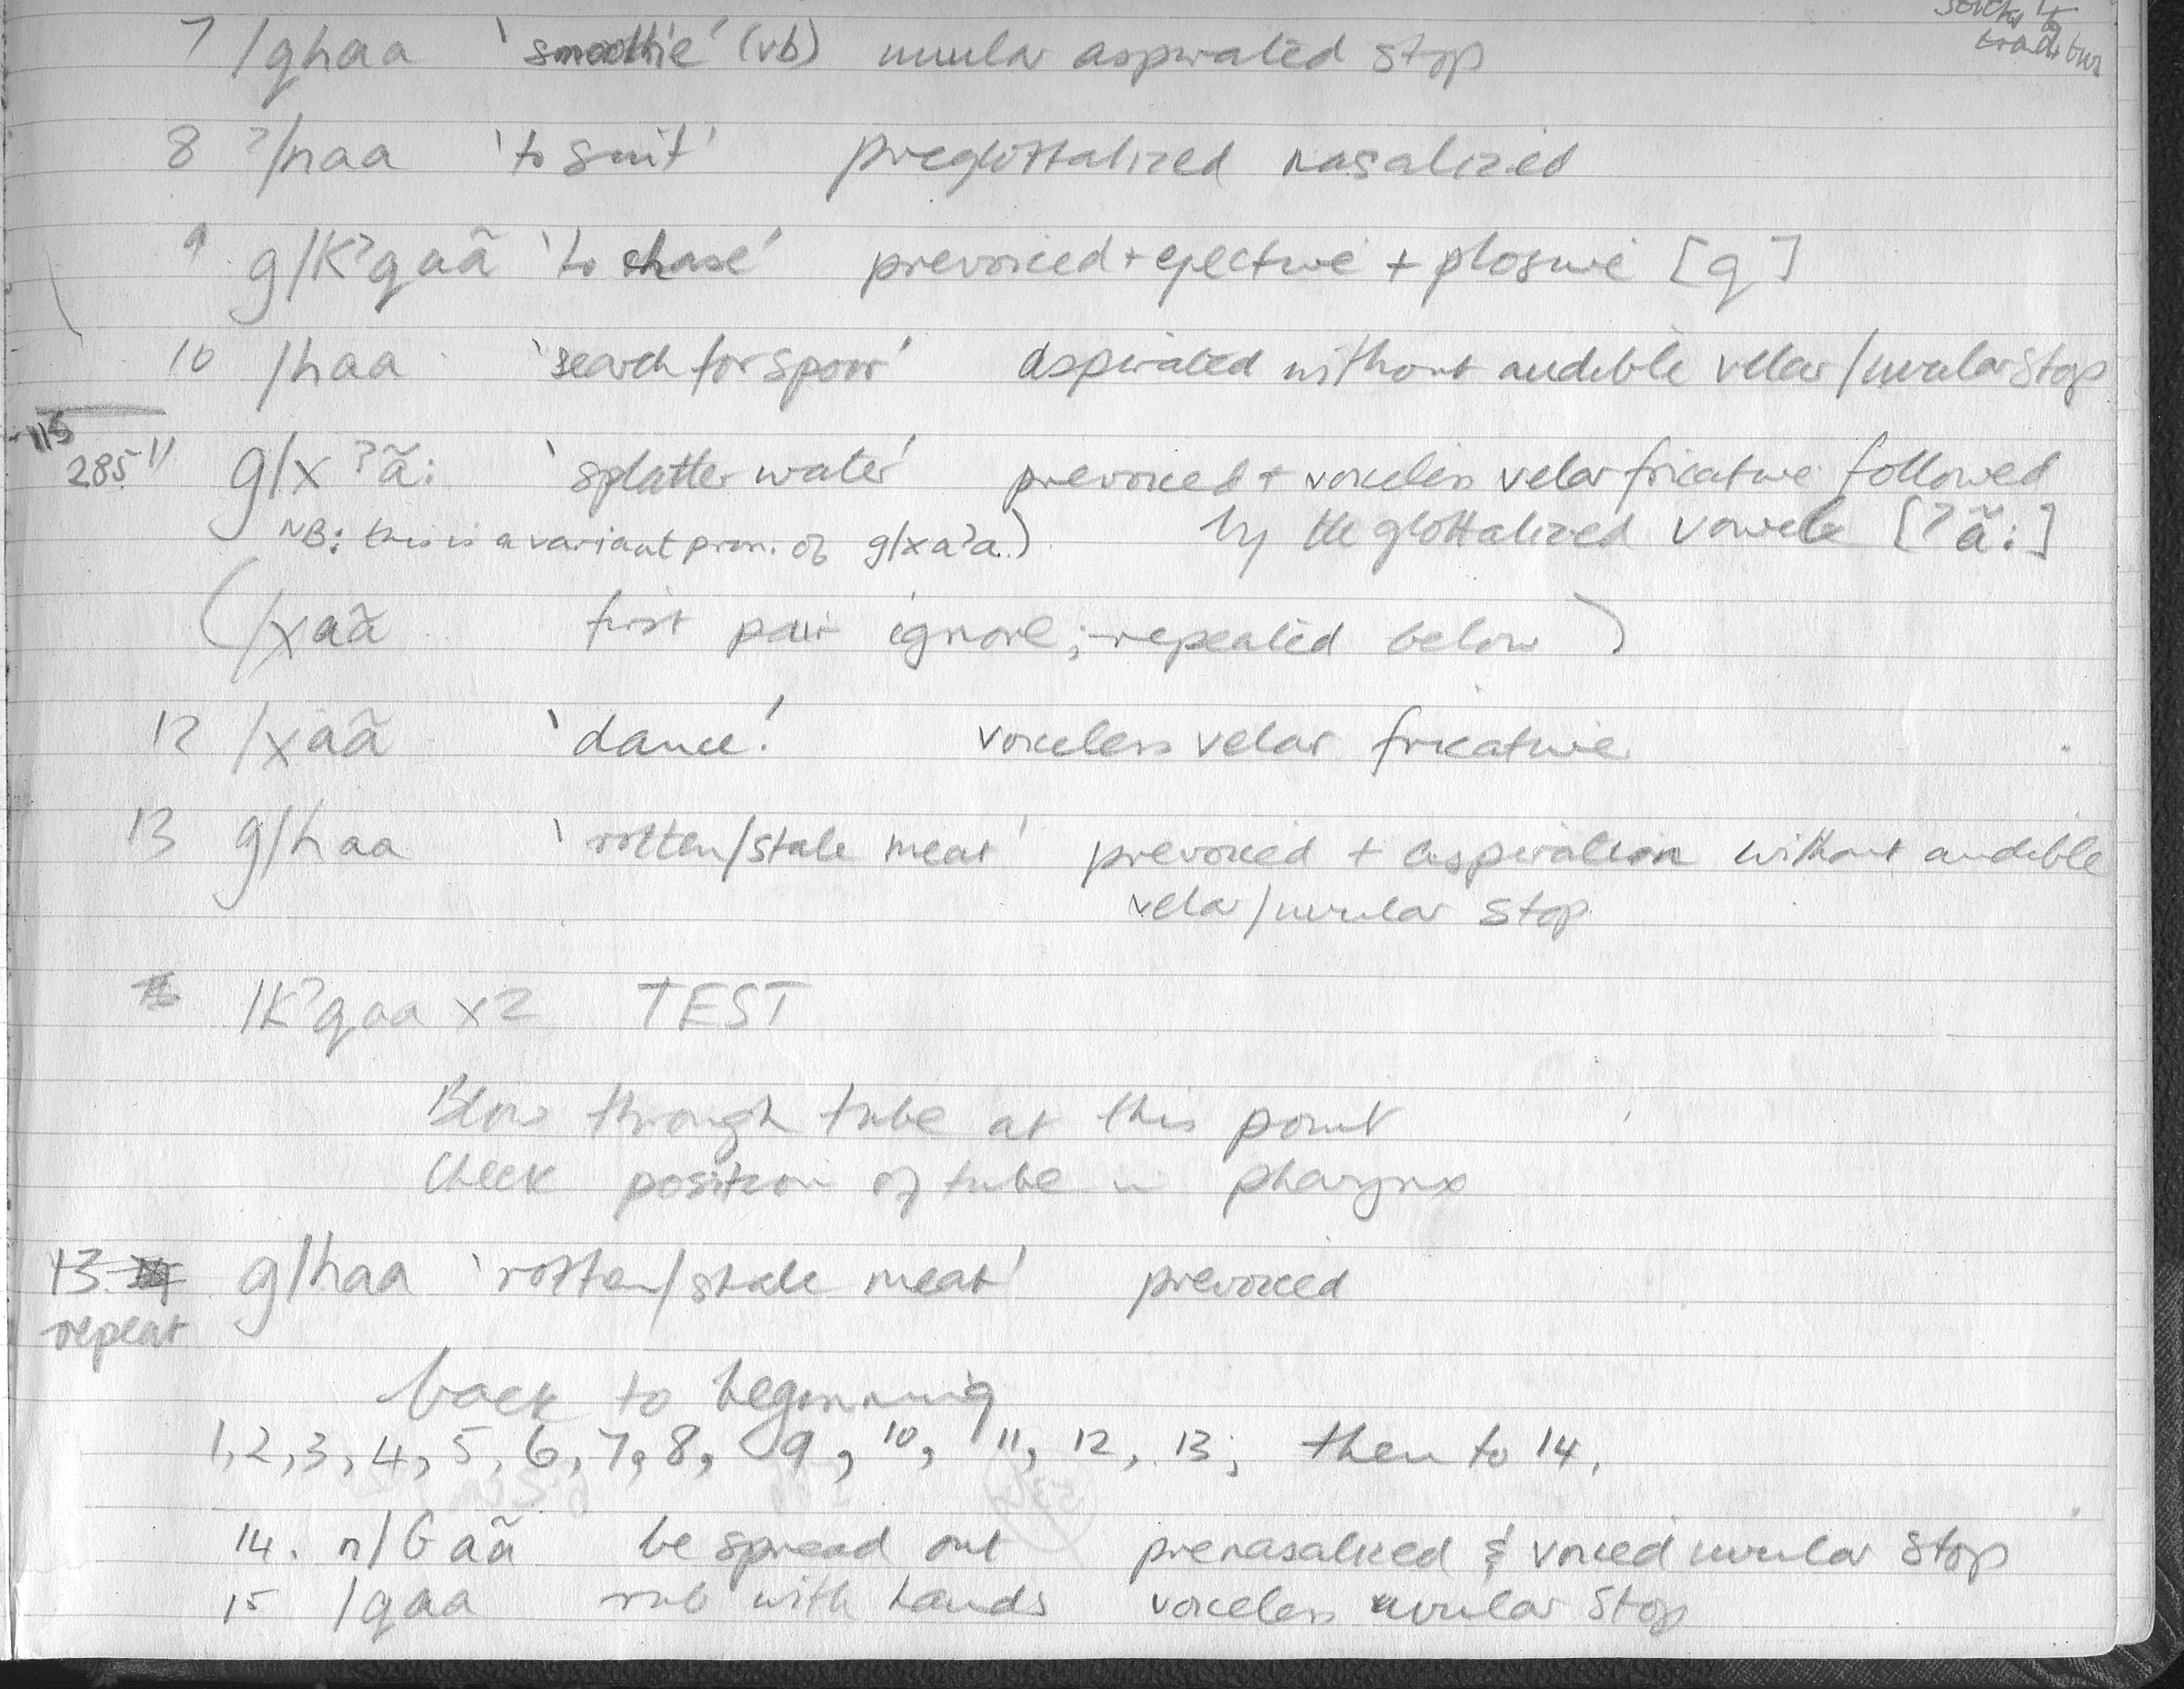 sticks to
tradition
7 /qhaa 'smoothe' (vb) uvular aspirated stop
8 ʔ/naa 'to suit' preglottalized nasalized
9 g/kʔqaã 'to chase' prevoiced + ejective + plosive [q]
10 /haa 'search for spoor' aspirated without audible velar/uvular stop
115
285 11 g/x ʔã: 'splatter water' prevoiced + voiceless velar fricative followed
NB: this is a variant pron. of g/xaʔa) by the glottalized vowel [ʔã:]
(/xaã first pair ignore; repeated below)
12 /xaã 'dance' voiceless velar fricative
13 g/haa 'rotten/stale meat' prevoiced + aspiration without audible
velar/uvular stop
/kʔqaa x2 TEST
Blow through tube at this point
Check position of tube in pharynx
13. g/haa 'rotten/stale meat' prevoiced
repeat
back to beginning
1, 2, 3, 4, 5, 6, 7, 8, 9, 10, 11, 12, 13; then to 14.
14. n/Gaã be spread out prenasalized & voiced uvular stop
15 /qaa rub with hands voiceless uvular stop